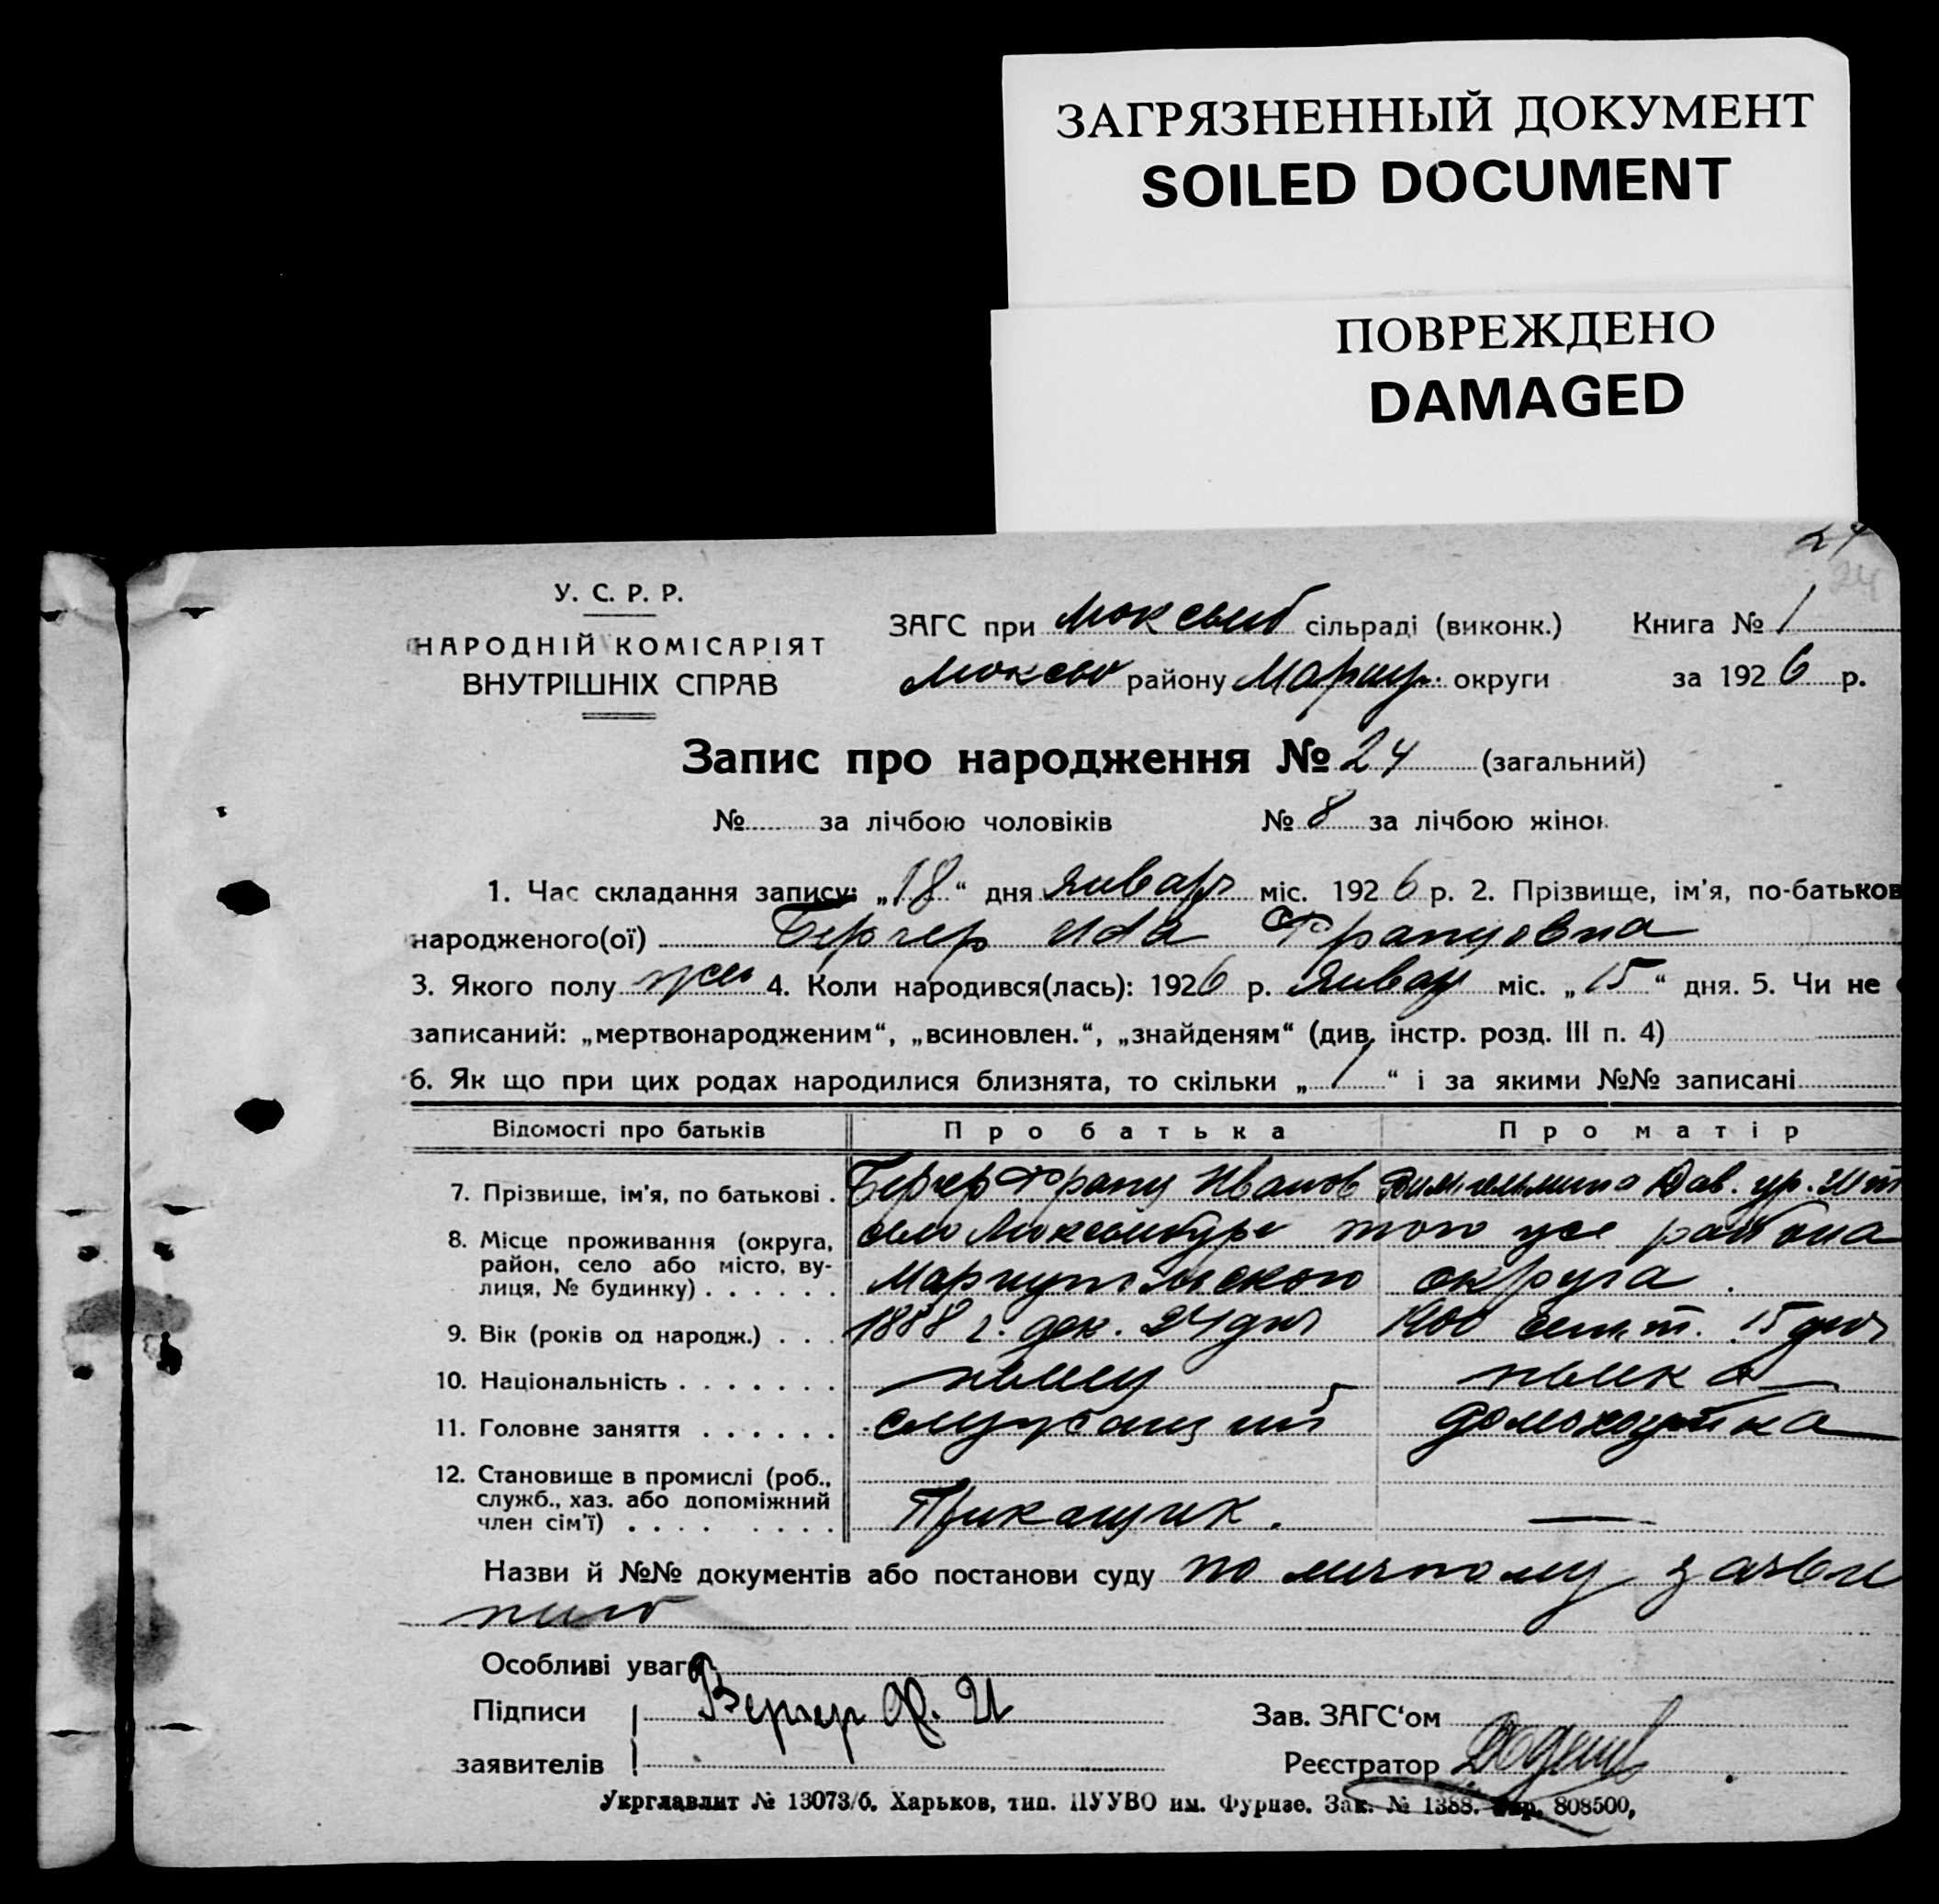 ЗАГРЯЗНЕННЫЙ ДОКУМЕНТ
SOILED DOCUMENT
ПОВРЕЖДЕНО
DAMAGED
24
24
У. С. Р. Р.
НАРОДНІЙ КОМІСАРІЯТ
ВНУТРІШНІХ СПРАВ
ЗАГС при сільраді (виконк.) Книга № 1
району Мариуп. округи за 1926 р.
Запис про народження № 24 (загальний)
№ за лічбою чоловіків № 8 за лічбою жінок
1. Час складання запису: „18“ дня января міс. 1926 р. 2. Прізвище, ім'я, по-батьков
народженого(ої) Бергер Ида Францовна
3. Якого полу жен 4. Коли народився(лась): 1926 р. Январ міс. „15“ дня. 5. Чи не
записаний: „мертвонародженим“, „всиновлен.“, „знайденям“ (див. інстр. розд. III п. 4)
6. Як що при цих родах народилися близнята, то скільки „1“ і за якими №№ записані
Відомості про батьків Про батька Про матір
7. Прізвище, ім'я, по батькові . Бергер Франц Иванов Дав. ур.
8. Місце проживання (округа, село того же района
район, село або місто, ву-
лиця, № будинку) . . . . . . Мариупольского округа .
9. Вік (років од народж.) . . . 1888 г. дек. 24 дня 1900 сент. 15 дня
10. Національність . . . . . . . немец немка
11. Головне заняття . . . . . . служащий домохозяйка
12. Становище в промислі (роб.,
служб., хаз. або допоміжний
член сім'ї) . . . . . . . . Приказщик. —
Назви й №№ документів або постанови суду по личному заяве
нию
Особливі уваги
Підписи Бергер Ф. И Зав. ЗАГС'ом
заявителів Реєстратор
Укрглавлит № 13073/б. Харьков, тип. ПУУВО им. Фрунзе. Зак. № 1388. Тир. 808500,